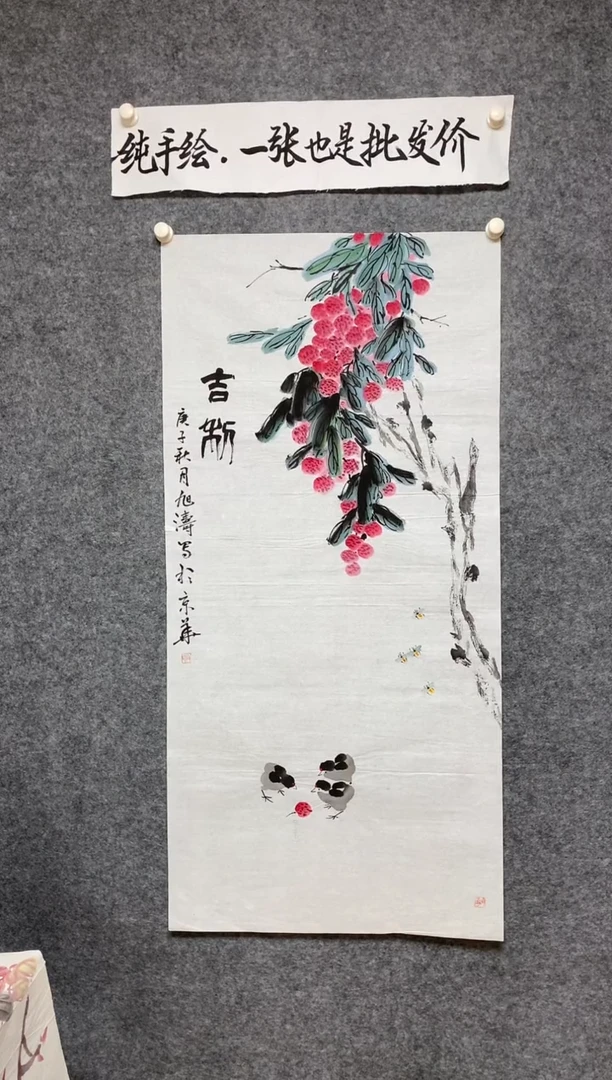 纯手绘.一张也是批发价
吉利
庚子秋月旭濤写於京華